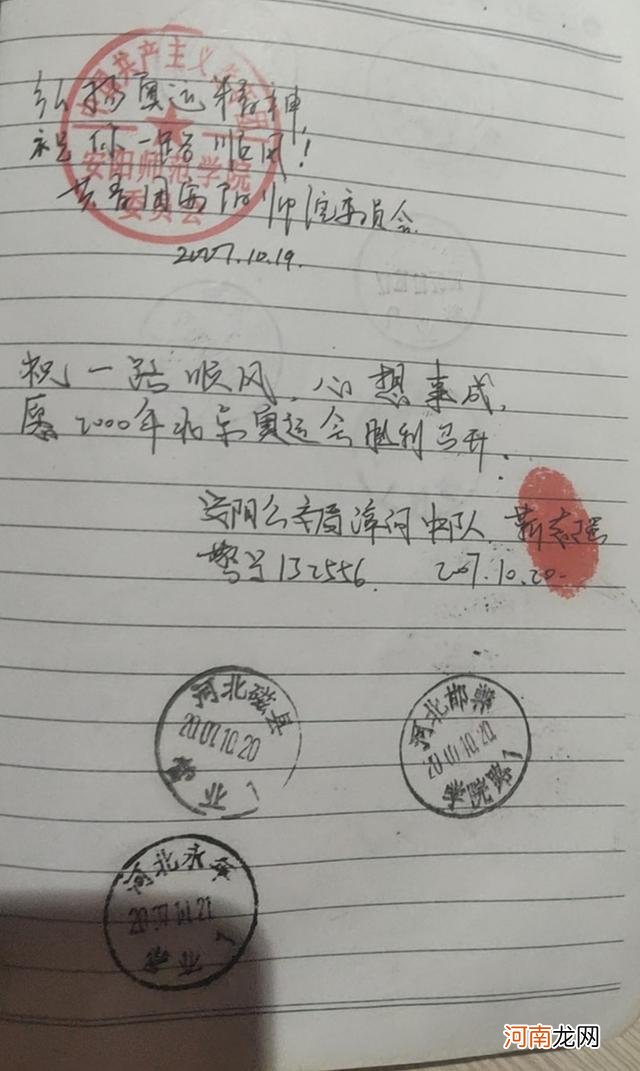 中国共产主义青年团
安阳师范学院
委员会
弘扬奥运精神,
祝你一路顺风!
共青团安阳师院委员会
2007.10.19.
祝一路顺风、心想事成,
愿2000年北京奥运会胜利召开.
安阳公安局漳河中队
警号132556. 2007.10.20.
河北磁县
2007.10.20
河北邯郸
2007.10.20
学院路1
河北永年
2007.10.21
河南龙网